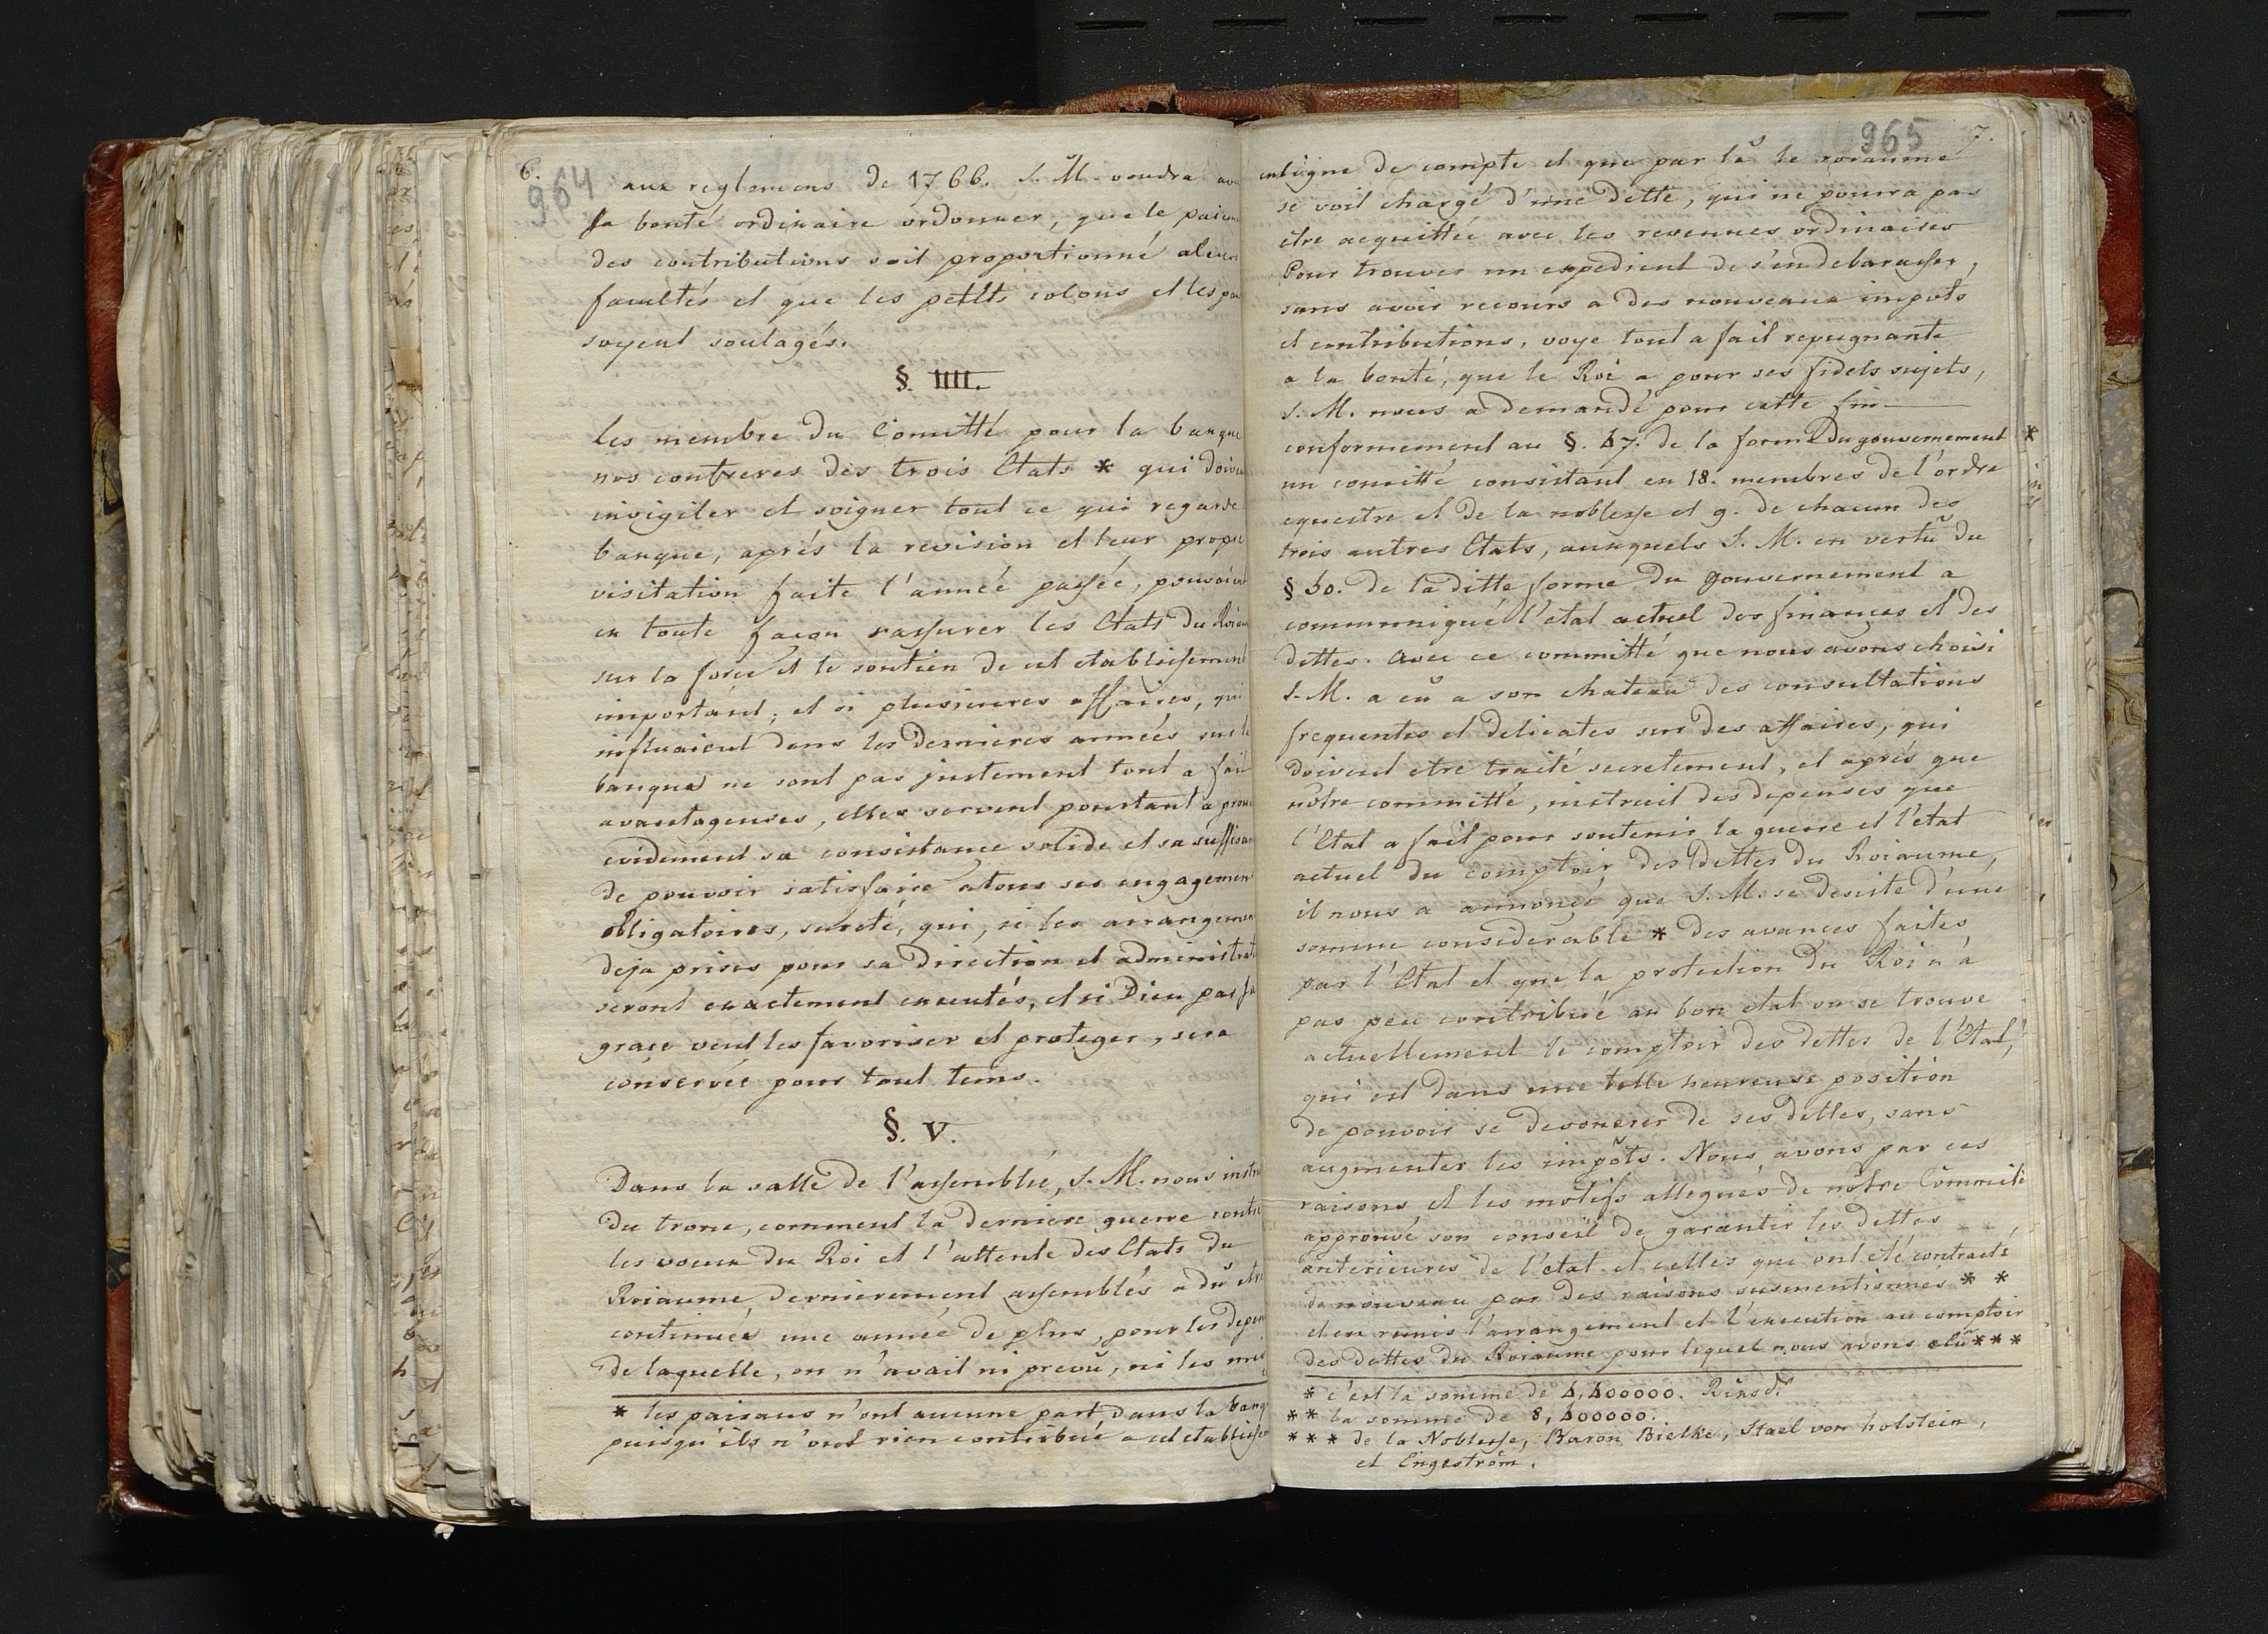 6.
964
aux reglemens de 1766. S. M. voudra
sa bonté ordinaire ordonner, que le
des contributions soit proportionné
facultés et que les petits colons et les
soyent soulagés.
§. IIII.
Les membre du Comitté pour la banque
nos confreres des trois Etats * qui
invigiler et soigner tout ce qui regarde
banque, aprés la revision et leur propre
visitation faite l'année passée,
en toute façon rassurer les Etats du
sur la force et le soutien de cet etablissement
important; et si plusieures affaires, qui
influaient dans les dernieres années sur la
banque ne sont pas justement tout a fait
avantageuses, elles servent pourtant a
evidement sa consistance solide et sa
de pouvoir satisfaire atous ses
obligatoires, sureté, qui, si les
deja prises pour sa direction et
seront exactement executés, et si Dieu par
grace veut les favoriser et proteger, sera
conservée pour tout tems.
§. V.
Dans la salle de l'assemblée, S. M. nous
du trone, comment la derniere guerre
les voeux du Roi et l'attente des Etats du
Roiaume, dernierement assemblés a dû
continuer une année de plus, pour les
de laquelle, on n'avait ni prevû, ni les
* les paisans n'ont aucune part dans la
puisqu'ils n'ont rien contribué a cet
965
7.
enligne de compte et que par lâ le roiaume
se voit chargé d'une dette, qui ne pourra pas
etre acquittée avec les revenues ordinaires
Pour trouver un expedient de s'en debarasser,
sans avoir recours a des nouveaux impots
et contributions, voye tout a fait repugnante
a la bonté, que le Roi a pour ses fidels sujets,
S. M. nous a demandé pour cette fin
conformement au §. 47. de la forme du gouvernement
un comitté consistant en 18. membres de l'ordre
equestre et de la noblesse et 9. de chacun des
trois autres Etats, auxquels S. M. en vertû du
§ 50. de la ditte forme du gouvernement a
communiqué l'etat actuel des finances et des
dettes. Avec ce committé que nous avons choisi
S. M. a eû a son chateau des consultations
frequentes et delicates sur des affaires, qui
doivent etre traité secretement, et aprés que
nôtre committé, instruit des depenses que
l'Etat a fait pour soutenir la guerre et l'etat
actuel du comptoir des dettes du Roiaume,
il nous a annonçé que S. M. se desiste d'une
somme considerable * des avances faites
par l'Etat et que la protection du Roi n'a
pas peu contribué au bon etat ou se trouve
actuellement le comptoir des dettes de l'Etat,
qui est dans une telle heureuse position
de pouvoir se devonerer de ses dettes, sans
augmenter les impôts. Nous avons par ces
raisons et les motifs allegués de nôtre Committé
approuvé son conseil de garantir les dettes
anterieures de l'etat et celles qui ont eté contracté
de nouveau par des raisons susmentionnés * *
et en remis l'arrangement et l'execution au comptoir
des dettes du Roiaume pour lequel nous avons elû * * *
* c'est la somme de 4,400000. Rixsdr
* * la somme de 8,400000.
* * * de la Noblesse, Baron Bielke, Stael von holstein,
et Engeström.